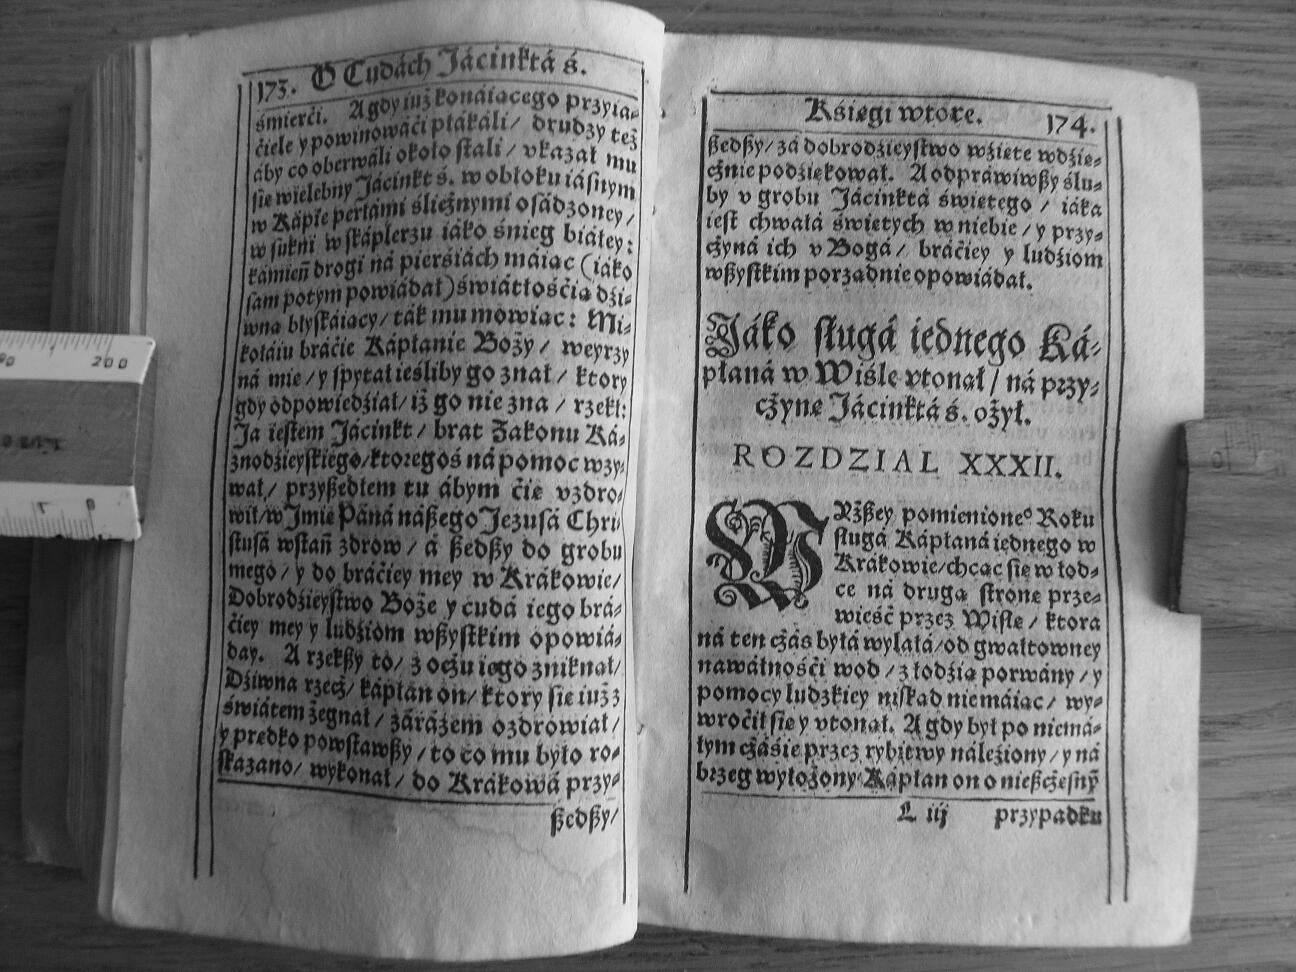 173. O Cudách Jácinktá ś.
śmierći. A gdy iuż konáiącego przyia-
ćiele y powinowáći płákáli/ drudzy też
áby co oberwáli około stali / vkazał mu
się wielebny Jácinkt ś. w obłoku iásnym
w Kápie perłámi ślicznymi osádzoney/
w sukni w szkáplerzu iáko śnieg białey:
kámień drogi ná pierśiách máiąc (iáko
sam potym powiádał) świátłośćią dźi-
wną błyskáiący/ ták mu mowiąc: Mi-
kołáiu bráćie Kápłanie Boży/ weyrzy
ná mię/ y spytał ieśliby go znał/ ktory
gdy odpowiedźiał/ iż go nie zna / rzekł:
Ja iestem Jácinkt/ brat Zakonu Ká-
znodźieyskiego/ ktoregoś ná pomoc wzy-
wał/ przyszedłem tu ábym ćię vzdro-
wił/ w Jmię Páná nászego Jezusá Chri-
stusá wstań zdrow / á szedszy do grobu
mego/ y do bráćiey mey w Krákowie/
Dobrodźieystwo Boże y cudá iego brá-
ćiey mey y ludźiom wszystkim opowiá-
day. A rzekszy to/ z oczu iego zniknął/
Dźiwna rzecz/ kápłan on/ ktory się iuż z
świátem żegnał/ záráżem ozdrowiał/
y prędko powstawszy/ to co mu było ro-
skazano/ wykonał/ do Krákowá przy-
szedszy/
Kśięgi wtore. 174.
szedszy/ zá dobrodźieystwo wźięte wdźię-
cznie podźiękował. A odpráwiwszy ślu-
by v grobu Jácinktá świętego / iáka
iest chwałá świętych w niebie/ y przy-
czyná ich v Bogá/ bráćiey y ludźiom
wszystkim porządnie opowiádał.
Jáko sługá iednego Ká-
płaná w Wiśle vtonął/ ná przy-
czynę Jácinktá ś. ożył.
ROZDZIAL XXXII.
WYższey pomienioneº Roku
sługá Kápłaná iednego w
Krákowie/ chcąc się w łod-
ce ná drugą stronę prze-
wieść przez Wisłę / ktora
ná ten czás byłá wylałá/ od gwałtowney
nawáłnośći wod / z łodźią porwány/ y
pomocy ludzkiey niskąd niemáiąc/ wy-
wroćił się y vtonął. A gdy był po niemá-
łym czáśie przez rybitwy náleźiony/ y ná
brzeg wyłożony/ Kápłan on o nieszczęsnỹ
L iij przypadku